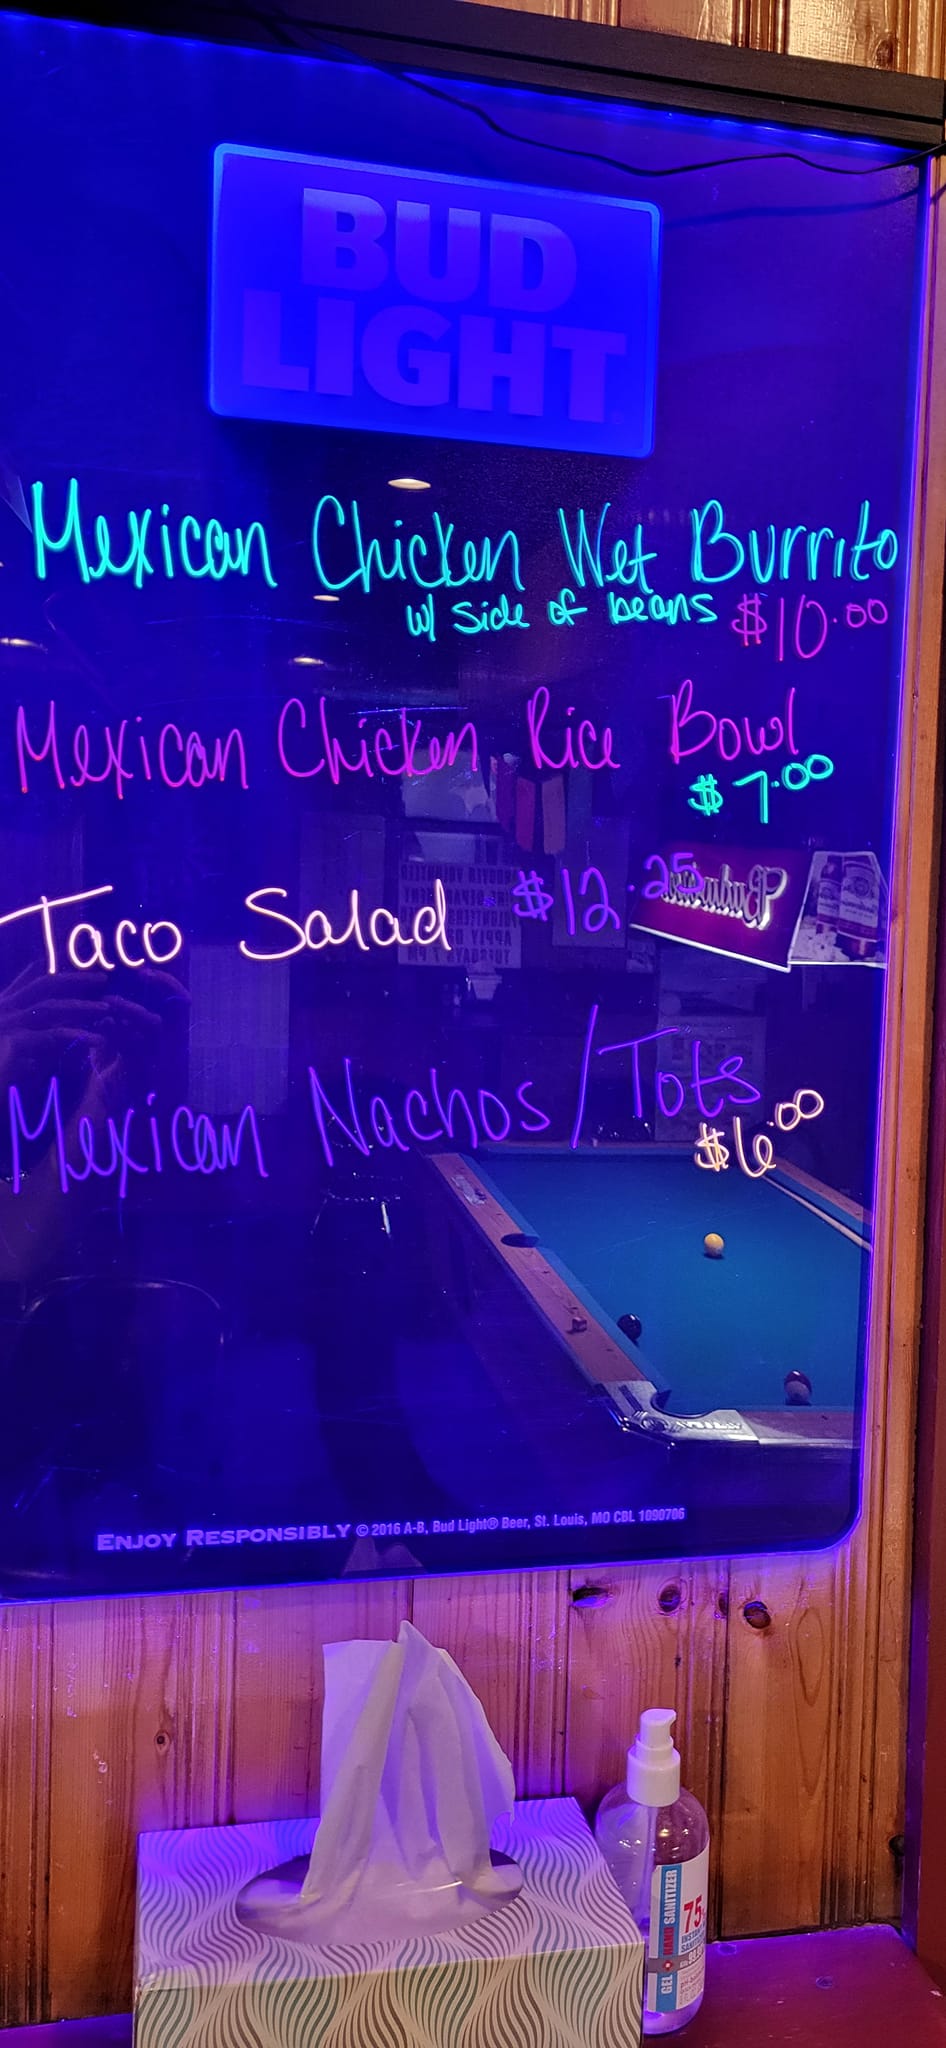 BUD
LIGHT
Mexican Chicken Wet Burrito
w/ side of beans $10.00
Mexican Chicken Rice Bowl
$7.00
Taco Salad $12.25
Mexican Nachos/Tots
$6.00
ENJOY RESPONSIBLY © 2016 A-B, Bud Light® Beer, St. Louis, MO CBL 1090706
GEL HAND SANITIZER
75